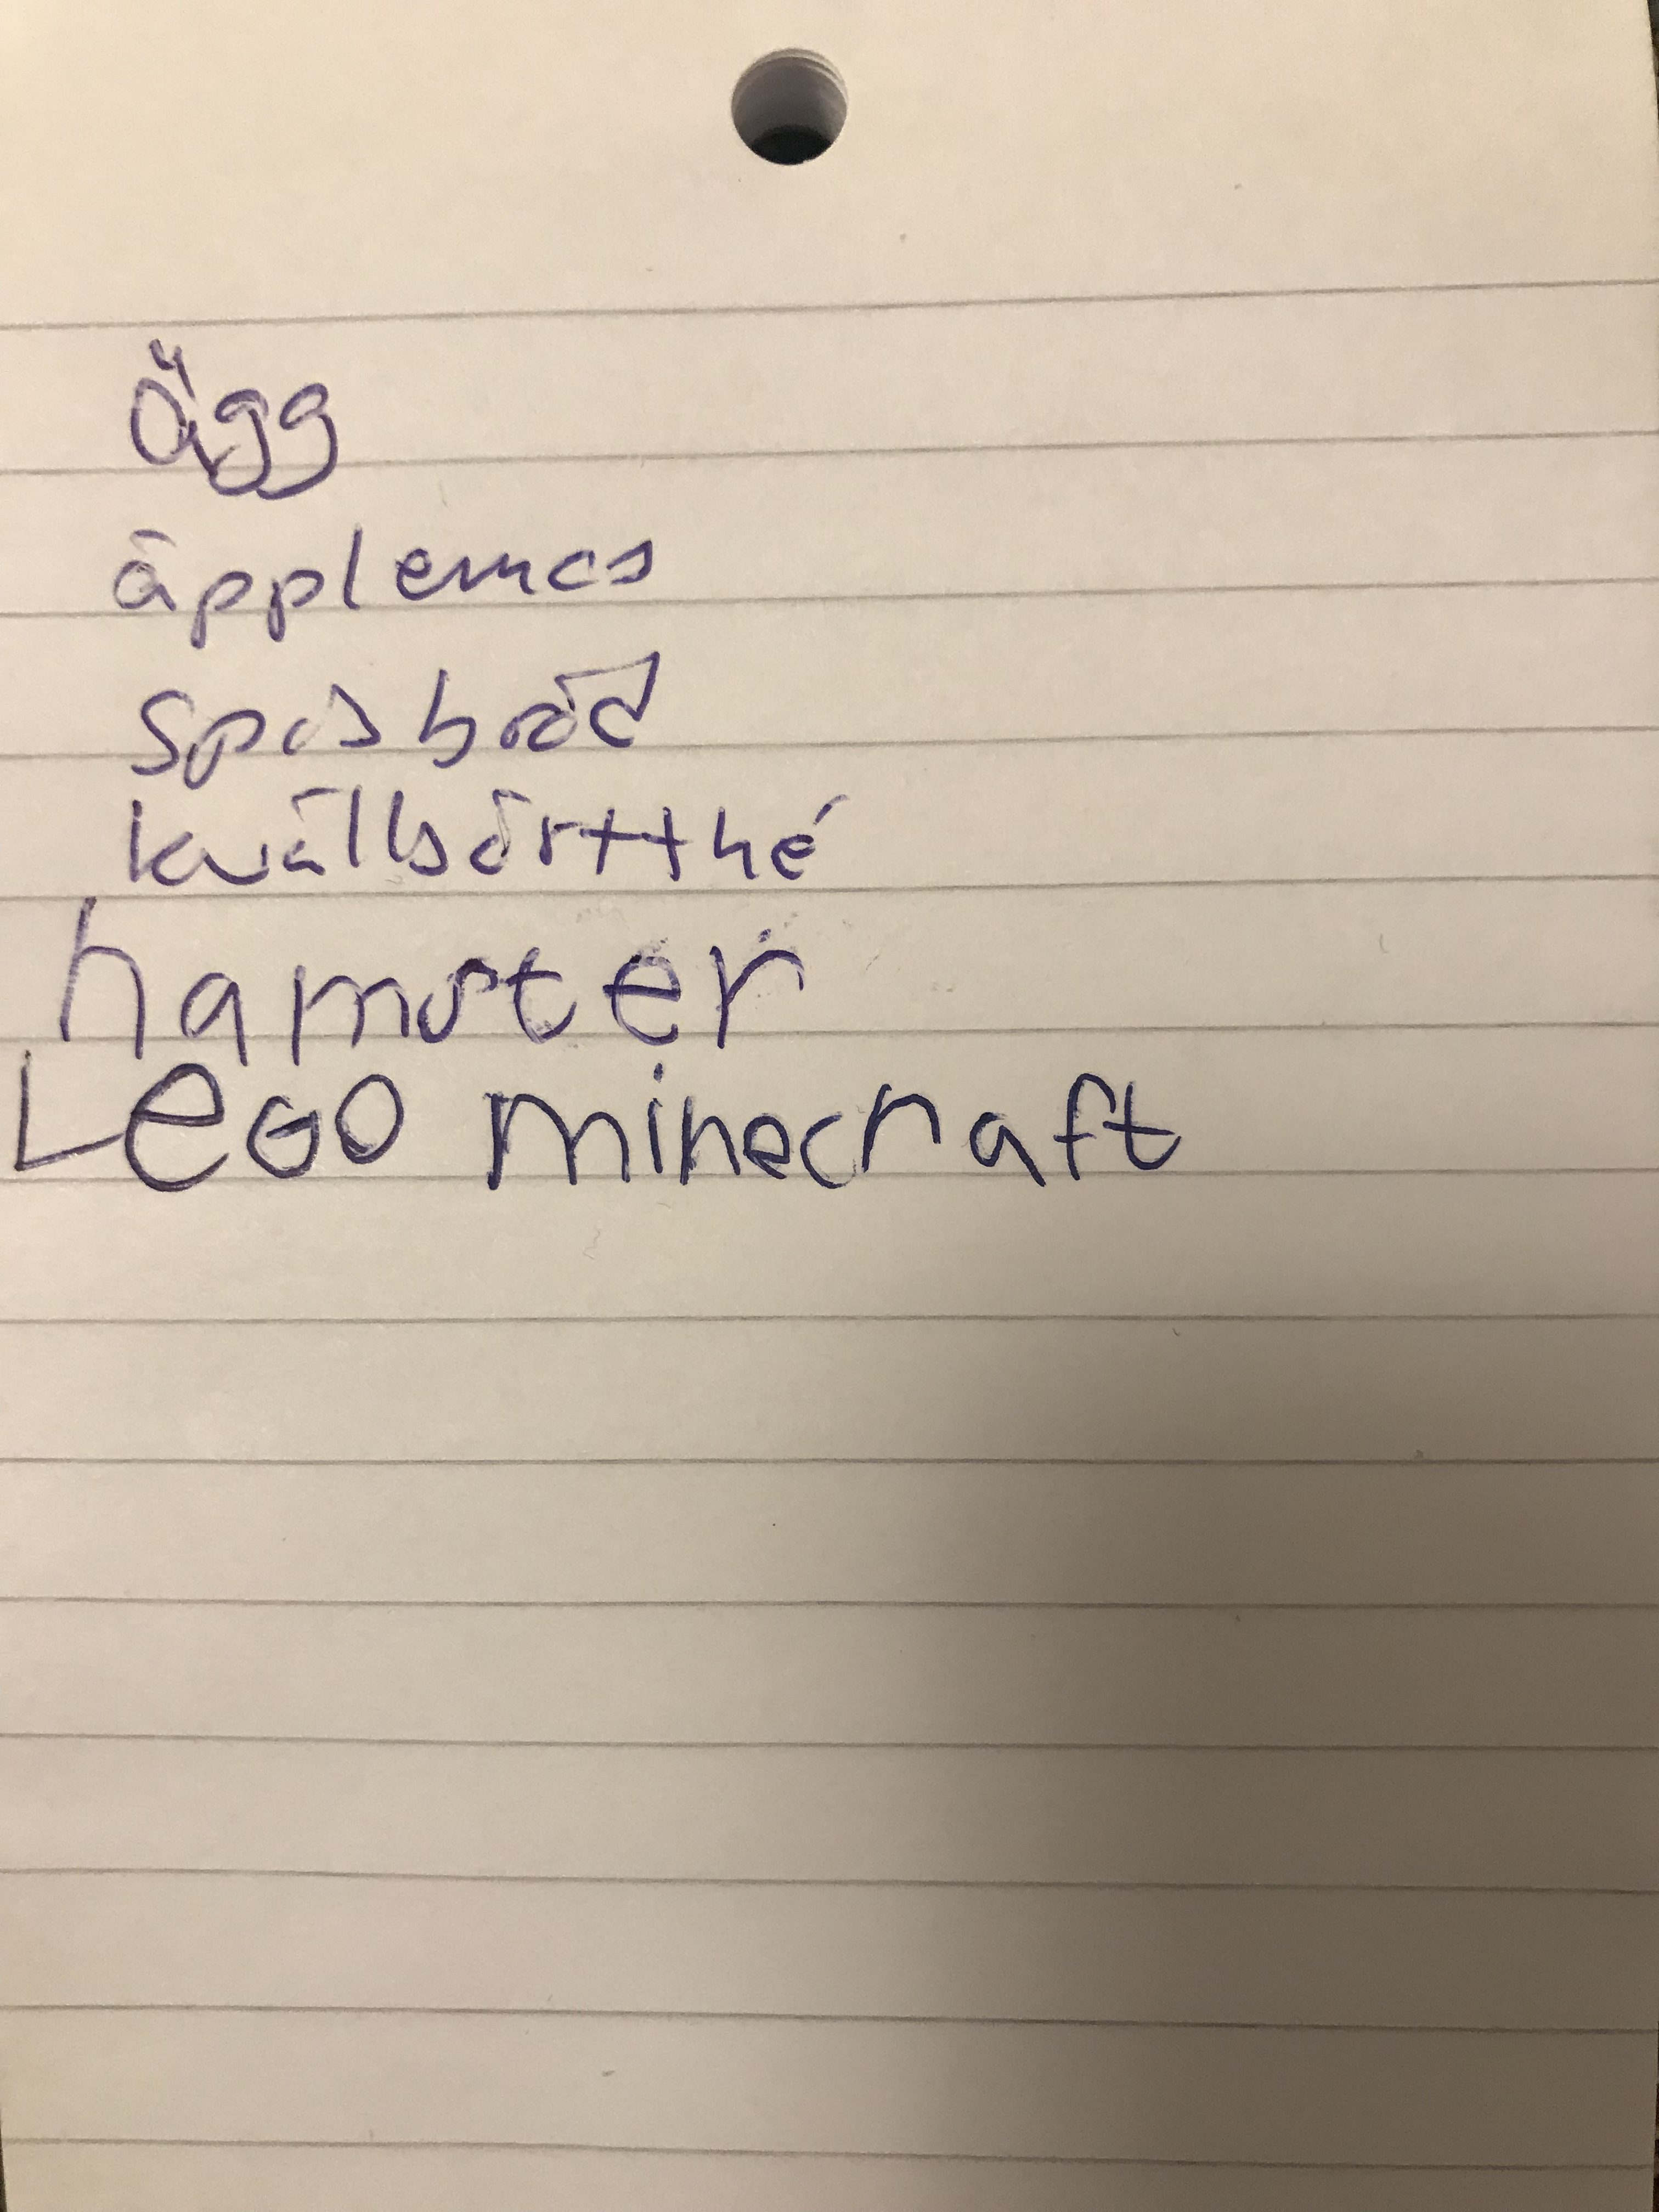 Ägg
äpplemos
spisbröd
kvällsörtthé
hamster
LEGO minecraft